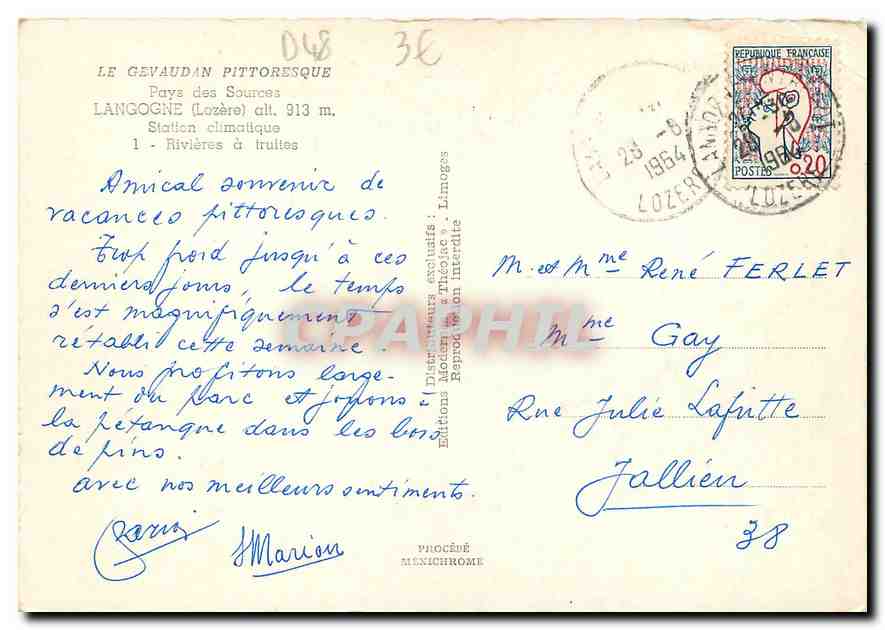 D48 3€
LE GEVAUDAN PITTORESQUE
Pays des Sources
LANGOGNE (Lozère) alt. 913 m.
Station climatique
1 - Rivières à truites
Amical souvenir de
vacances pittoresques.
Trop froid jusqu'à ces
derniers jours, le temps
s'est magnifiquement
rétabli cette semaine.
Nous profitons large-
ment du parc et jouons à
la pétanque dans les bois
de pins.
avec nos meilleurs sentiments.
Marion
PROCÉDÉ
MEXICHROME
Distributeurs exclusifs :
Editions Modernes « Théojac » - Limoges
Reproduction interdite
CPAPHIL
28 -8
1964
LOZERE
REPUBLIQUE FRANÇAISE
POSTES 0,20
28 -8
1964
LOZERE
M. et Mme René FERLET
Mme Gay
Rue Julie Lafitte
Jallieu
38